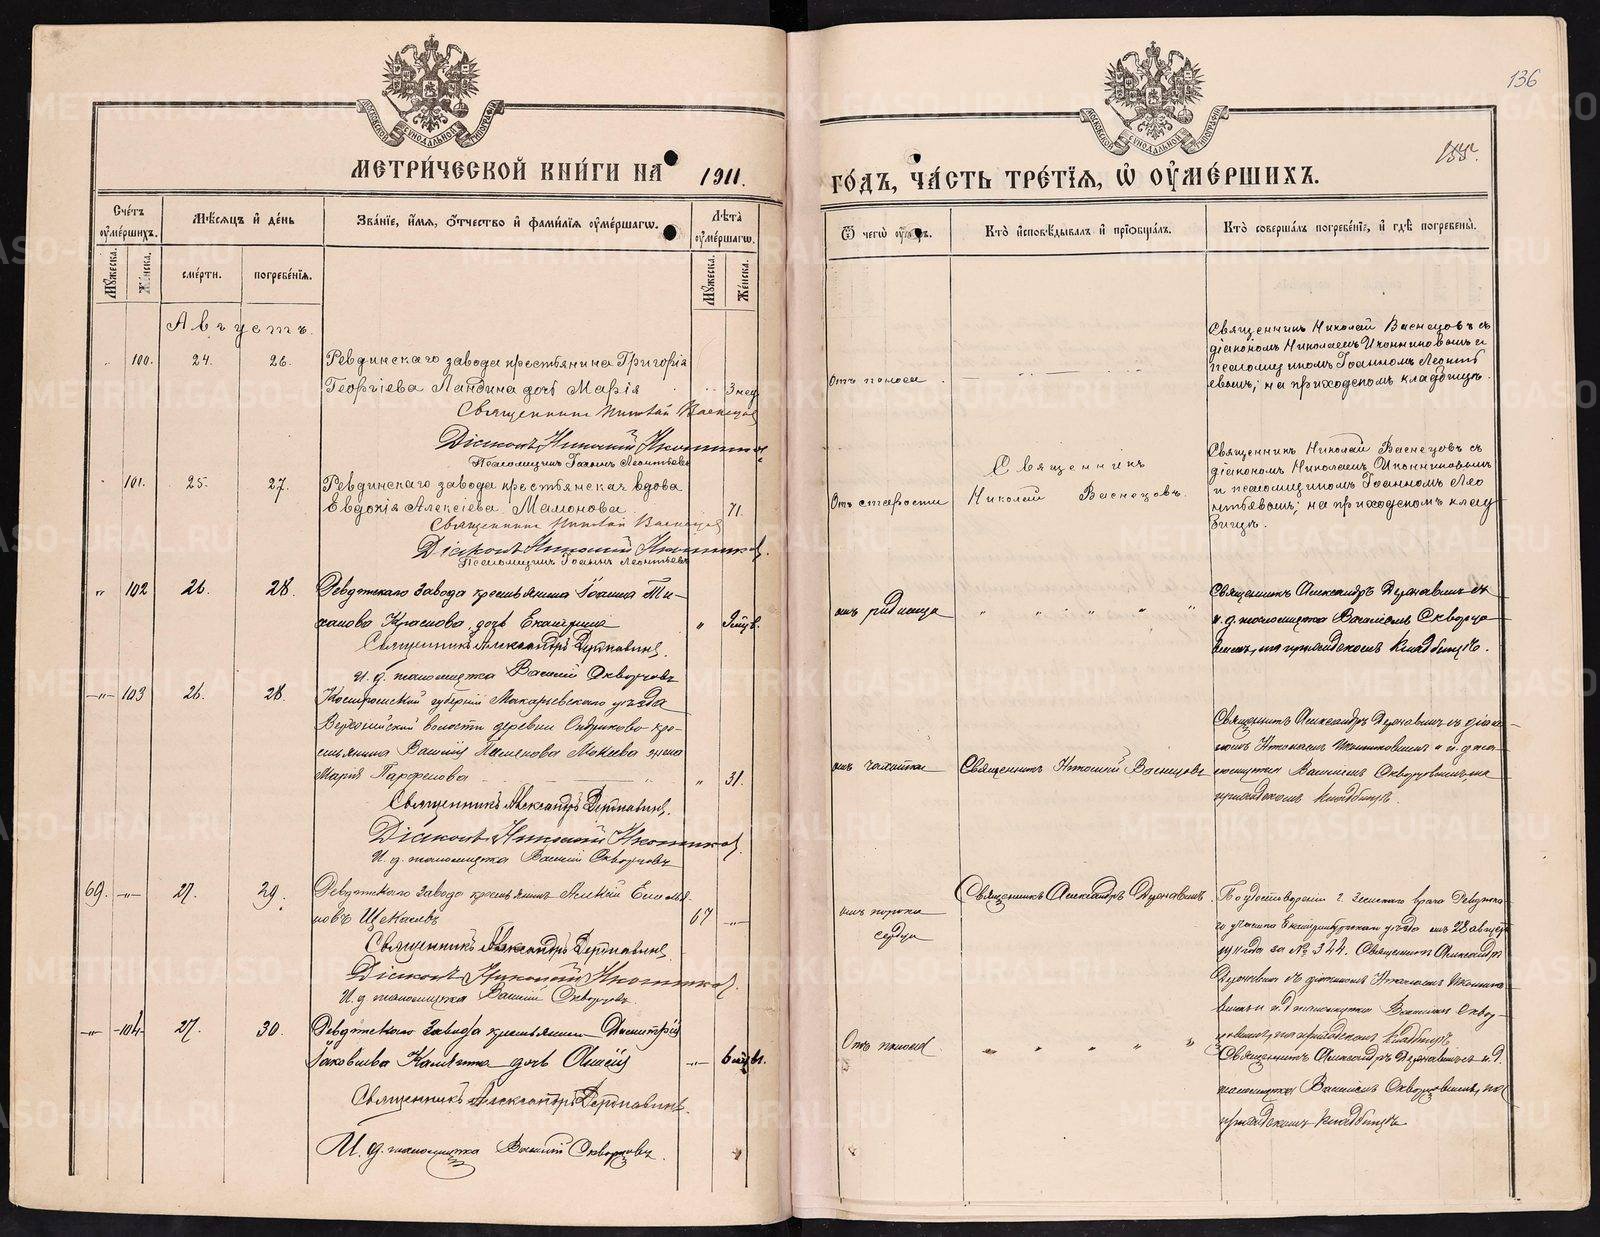 136
155.
МОСКОВСКОЙ СУНОДАЛЬНОЙ ТИПОГРАФІИ
МОСКОВСКОЙ СУНОДАЛЬНОЙ ТИПОГРАФІИ
МЕТРИ́ЧЕСКОЙ КНИ́ГИ НА 1911.
ГО́ДЪ, ЧА́СТЬ ТРЕ́ТІЯ, Ѡ ОУМЕ́РШИХЪ.
Сче́тъ оуме́ршихъ.
Мѣ́сяцъ и де́нь
Зва́ніе, и́мя, о́тчество и фами́лія оуме́ршаго.
Лѣта̀ оуме́ршаго.
Мужеска.
Же́нска.
сме́рти.
погребе́нія.
Мужеска.
Же́нска.
Ѿ чего̀
Кто̀ исповѣ́дывалъ и пріобща́лъ.
Кто̀ соверша́лъ погребе́ніе, и гдѣ̀ погребены̀.
Августъ.
100. 24. 26. Ревдинскаго завода крестьянина Григорія
Георгіева Ландина дочь Марія 3 нед.
Священникъ Николай Васнецов
Діаконъ Николай Иконников
Псаломщикъ Іоаннъ Леонтьевъ
Отъ поноса
Священникъ Николай Васнецовъ съ
діакономъ Николаемъ Иконниковымъ и
псаломщикомъ Іоанномъ Леонть
евымъ; на приходскомъ кладбищѣ.
101. 25. 27. Ревдинскаго завода крестьянская вдова
Евдокія Алексіева Мамонова 71.
Священникъ Николай Васнецов
Діаконъ Николай Иконников.
Псаломщикъ Іоаннъ Леонтьевъ
Отъ старости
Священникъ
Николай Васнецовъ.
Священникъ Николай Васнецовъ съ
діакономъ Николаемъ Иконниковымъ
и псаломщикомъ Іоанномъ Лео
нтьевымъ; на приходскомъ клад
бищѣ.
" 102 26. 28. Ревдинскаго завода крестьянина Іоанна
Краснова дочь Екатерина "
Священникъ Александръ Державинъ.
И. д. псаломщика Василій Скворцовъ
отъ родимца " " " " "
Священникъ Александръ Державинъ съ
и. д. псаломщика Василіемъ Скворцо
вымъ, на приходскомъ кладбищѣ.
—"— 103 26. 28. Костромской губерніи Макарьевскаго уѣзда
волости деревни кре-
стьянина Василія Мокеева жена
Марія Парфенова " 31.
Священникъ Александръ Державинъ.
Діаконъ Николай Иконников.
И. д. псаломщика Василій Скворцовъ
отъ чахотки
Священникъ Николай Васнецовъ
Священникъ Александръ Державинъ съ діако-
номъ Николаемъ Иконниковымъ и и. д. пса-
ломщика Василіемъ Скворцовымъ, на
приходскомъ кладбищѣ.
69. —"— 27. 29. Ревдинскаго завода крестьянинъ Алексій
новъ Щекалевъ 67 —"—
Священникъ Александръ Державинъ.
Діаконъ Николай Иконников.
И. д. псаломщика Василій Скворцовъ.
отъ порока
сердца
Священникъ Александръ Державинъ.
По удостовѣренію г. земскаго врача Ревдинска
го участка Екатеринбургскаго уѣзда отъ 28 август
за № 344. Священникъ Александръ
Державинъ съ діакономъ Николаемъ Иконнико-
вымъ и и. д. псаломщика Василіемъ Сквор-
цовымъ, на приходскомъ кладбищѣ
—"— 104 27. 30. Ревдинскаго завода крестьянина Димитрія
Іаковлева дочь —"— 6 мѣс.
Священникъ Александръ Державинъ.
И. д. псаломщика Василій Скворцовъ.
Отъ поноса " " " " "
Священникъ Александръ Державинъ съ и. д.
псаломщика Василіемъ Скворцовымъ, на
приходскомъ кладбищѣ
METRIKI.GASO-URAL.RU